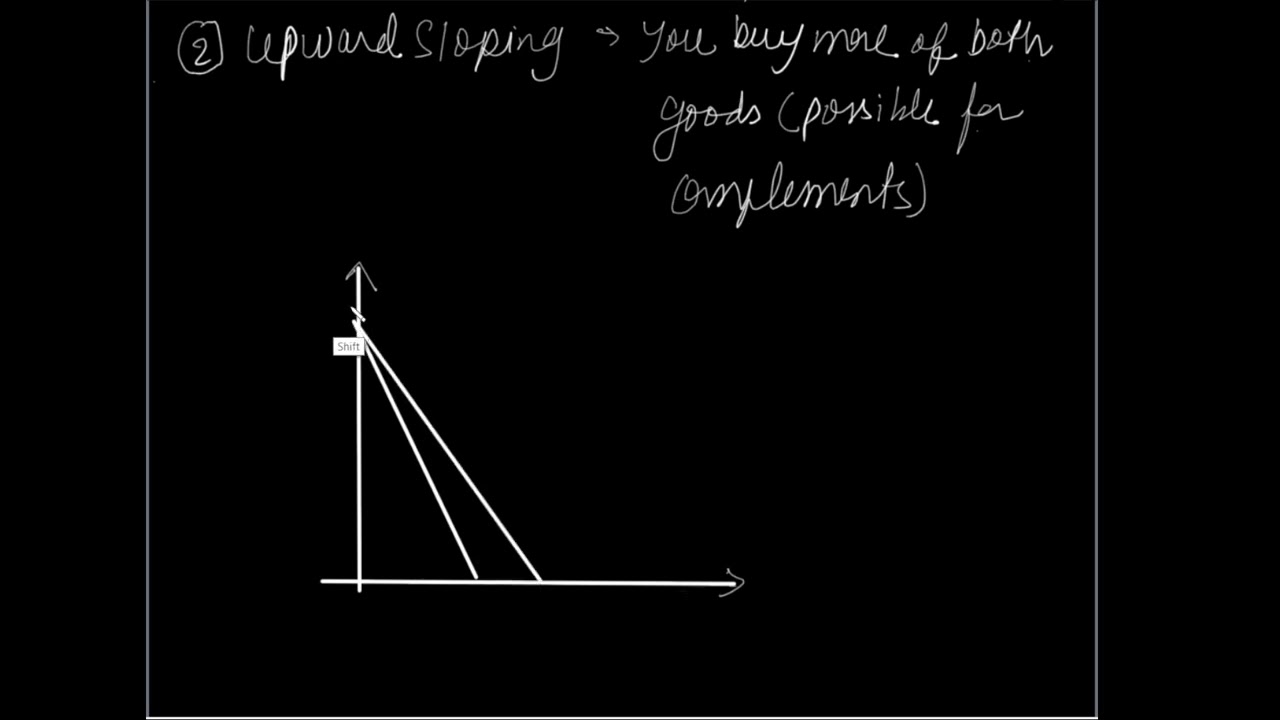 ② Upward Sloping → You buy more of both
goods (possible for
complements)
Shift